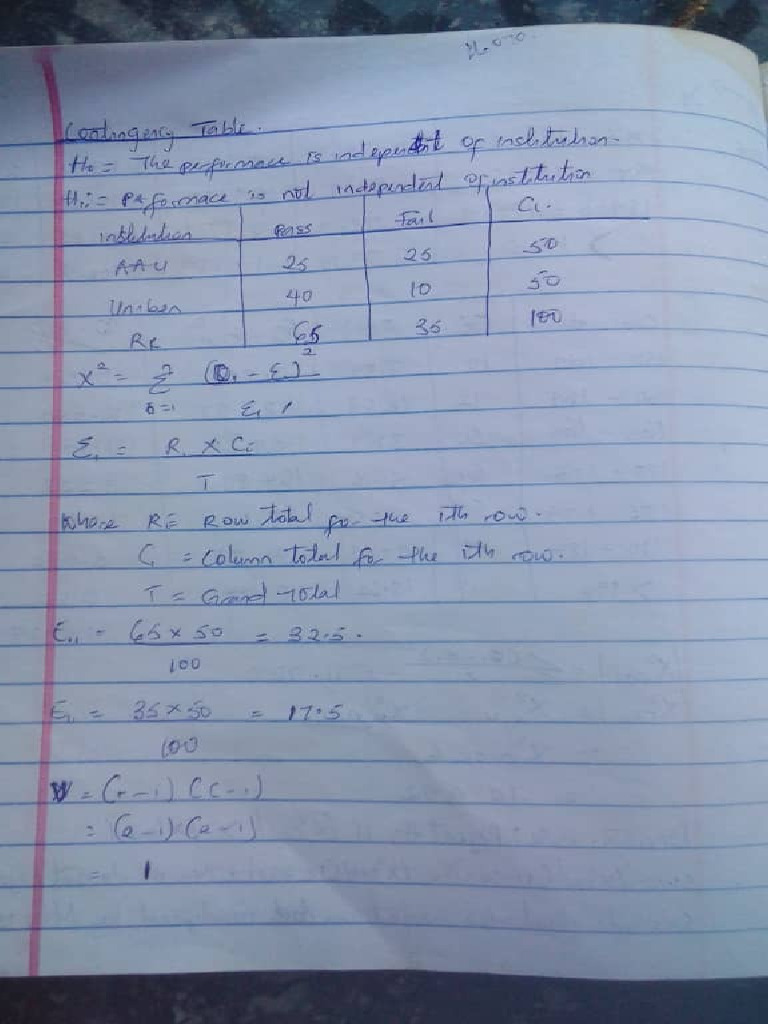 Contingency Table.
H₀ = The performace is independent of institution.
H₁ = performace is not independent of institution
institution Pass Fail Ci.
AAU 25 25 50
Uniben 40 10 50
Ri 65 35 100
X² = Σ (Oi - Ei)²
i=1 Ei
Ei = Ri X Ci
T
Where Ri = Row total for the ith row.
Ci = Column total for the ith row.
T = Grand total
E₁₁ = 65 x 50 = 32.5.
100
E₁₂ = 35 x 50 = 17.5
100
V = (r-1) (c-1)
= (2-1) (2-1)
= 1